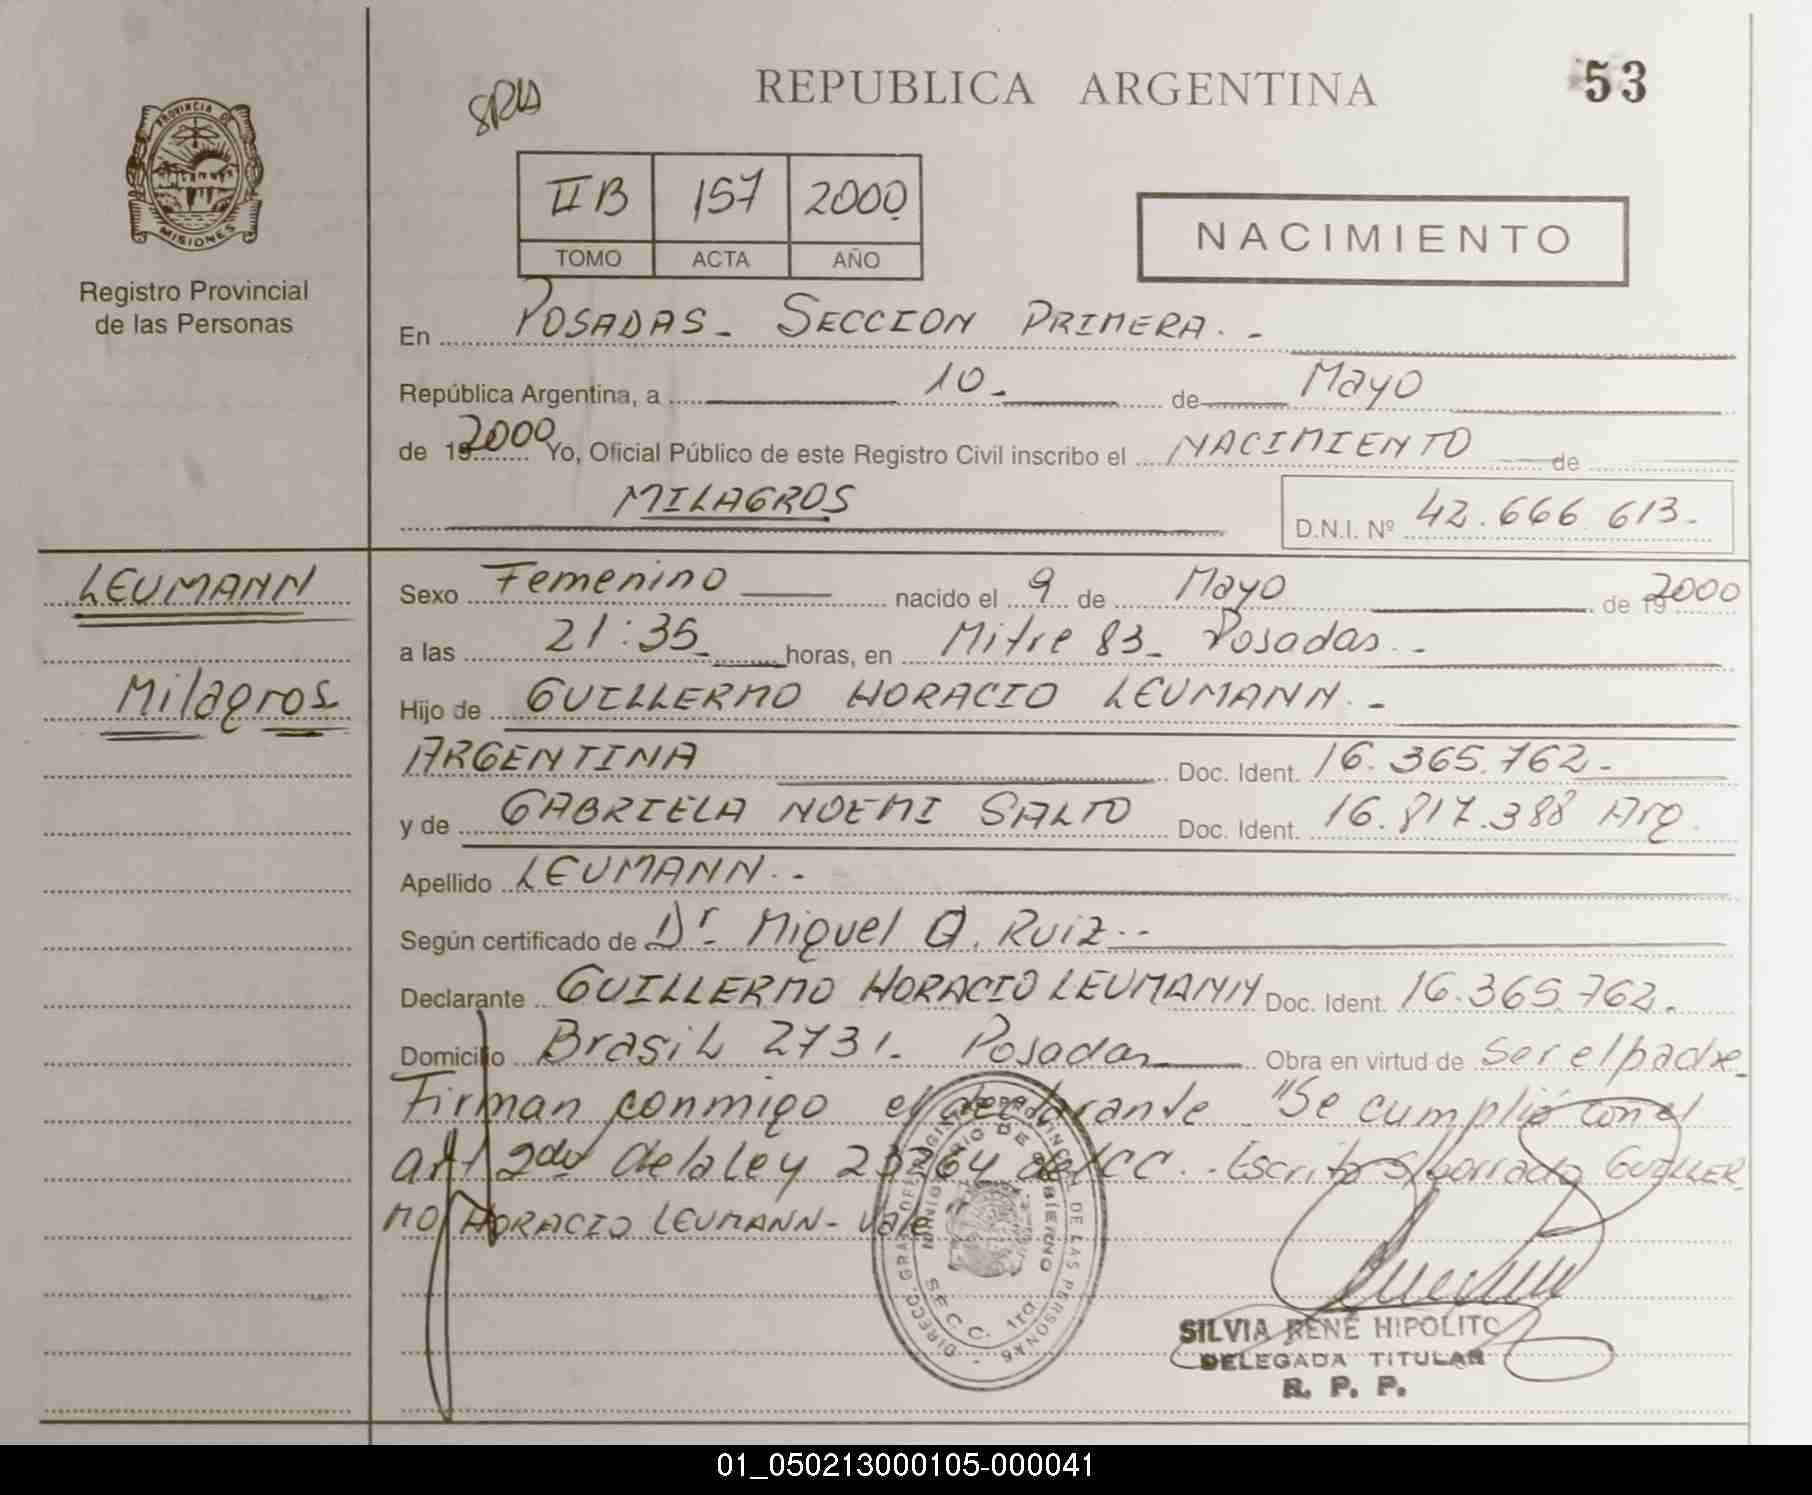 REPUBLICA ARGENTINA
53
PROVINCIA DE
MISIONES
Registro Provincial
de las Personas
II B 157 2000
TOMO ACTA AÑO
NACIMIENTO
En POSADAS - SECCION PRIMERA. -
República Argentina, a 10 - de Mayo
de 19 2000 Yo, Oficial Público de este Registro Civil inscribo el NACIMIENTO de
MILAGROS
D.N.I. Nº 42.666 613.-
LEUMANN
Milagros
Sexo Femenino nacido el 9 de Mayo de 19 2000
a las 21:35 - horas, en Mitre 83 - Posadas. -
Hijo de GUILLERMO HORACIO LEUMANN. -
ARGENTINA Doc. Ident. 16.365.762. -
y de GABRIELA NOEMI SALTO Doc. Ident. 16.817.388 Arg.
Apellido LEUMANN. -
Según certificado de Dr. Miguel Q. Ruiz. -
Declarante GUILLERMO HORACIO LEUMANN Doc. Ident. 16.365.762. -
Domicilio Brasil 2731. Posadas Obra en virtud de ser el padre -
Firman conmigo el declarante "Se cumplió con el
art 2do de la Ley 23264 del CC. - Escrito s/borrado GUILLER
MO HORACIO LEUMANN - Vale
MINISTERIO DE GOBIERNO
SECC. 1ra
SILVIA RENE HIPOLITO
DELEGADA TITULAR
R. P. P.
01_050213000105-000041